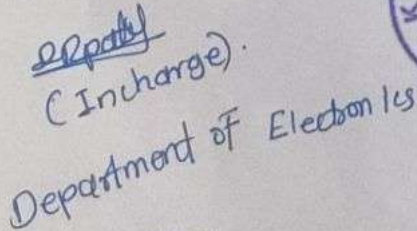 (Incharge).
Department of Electronics